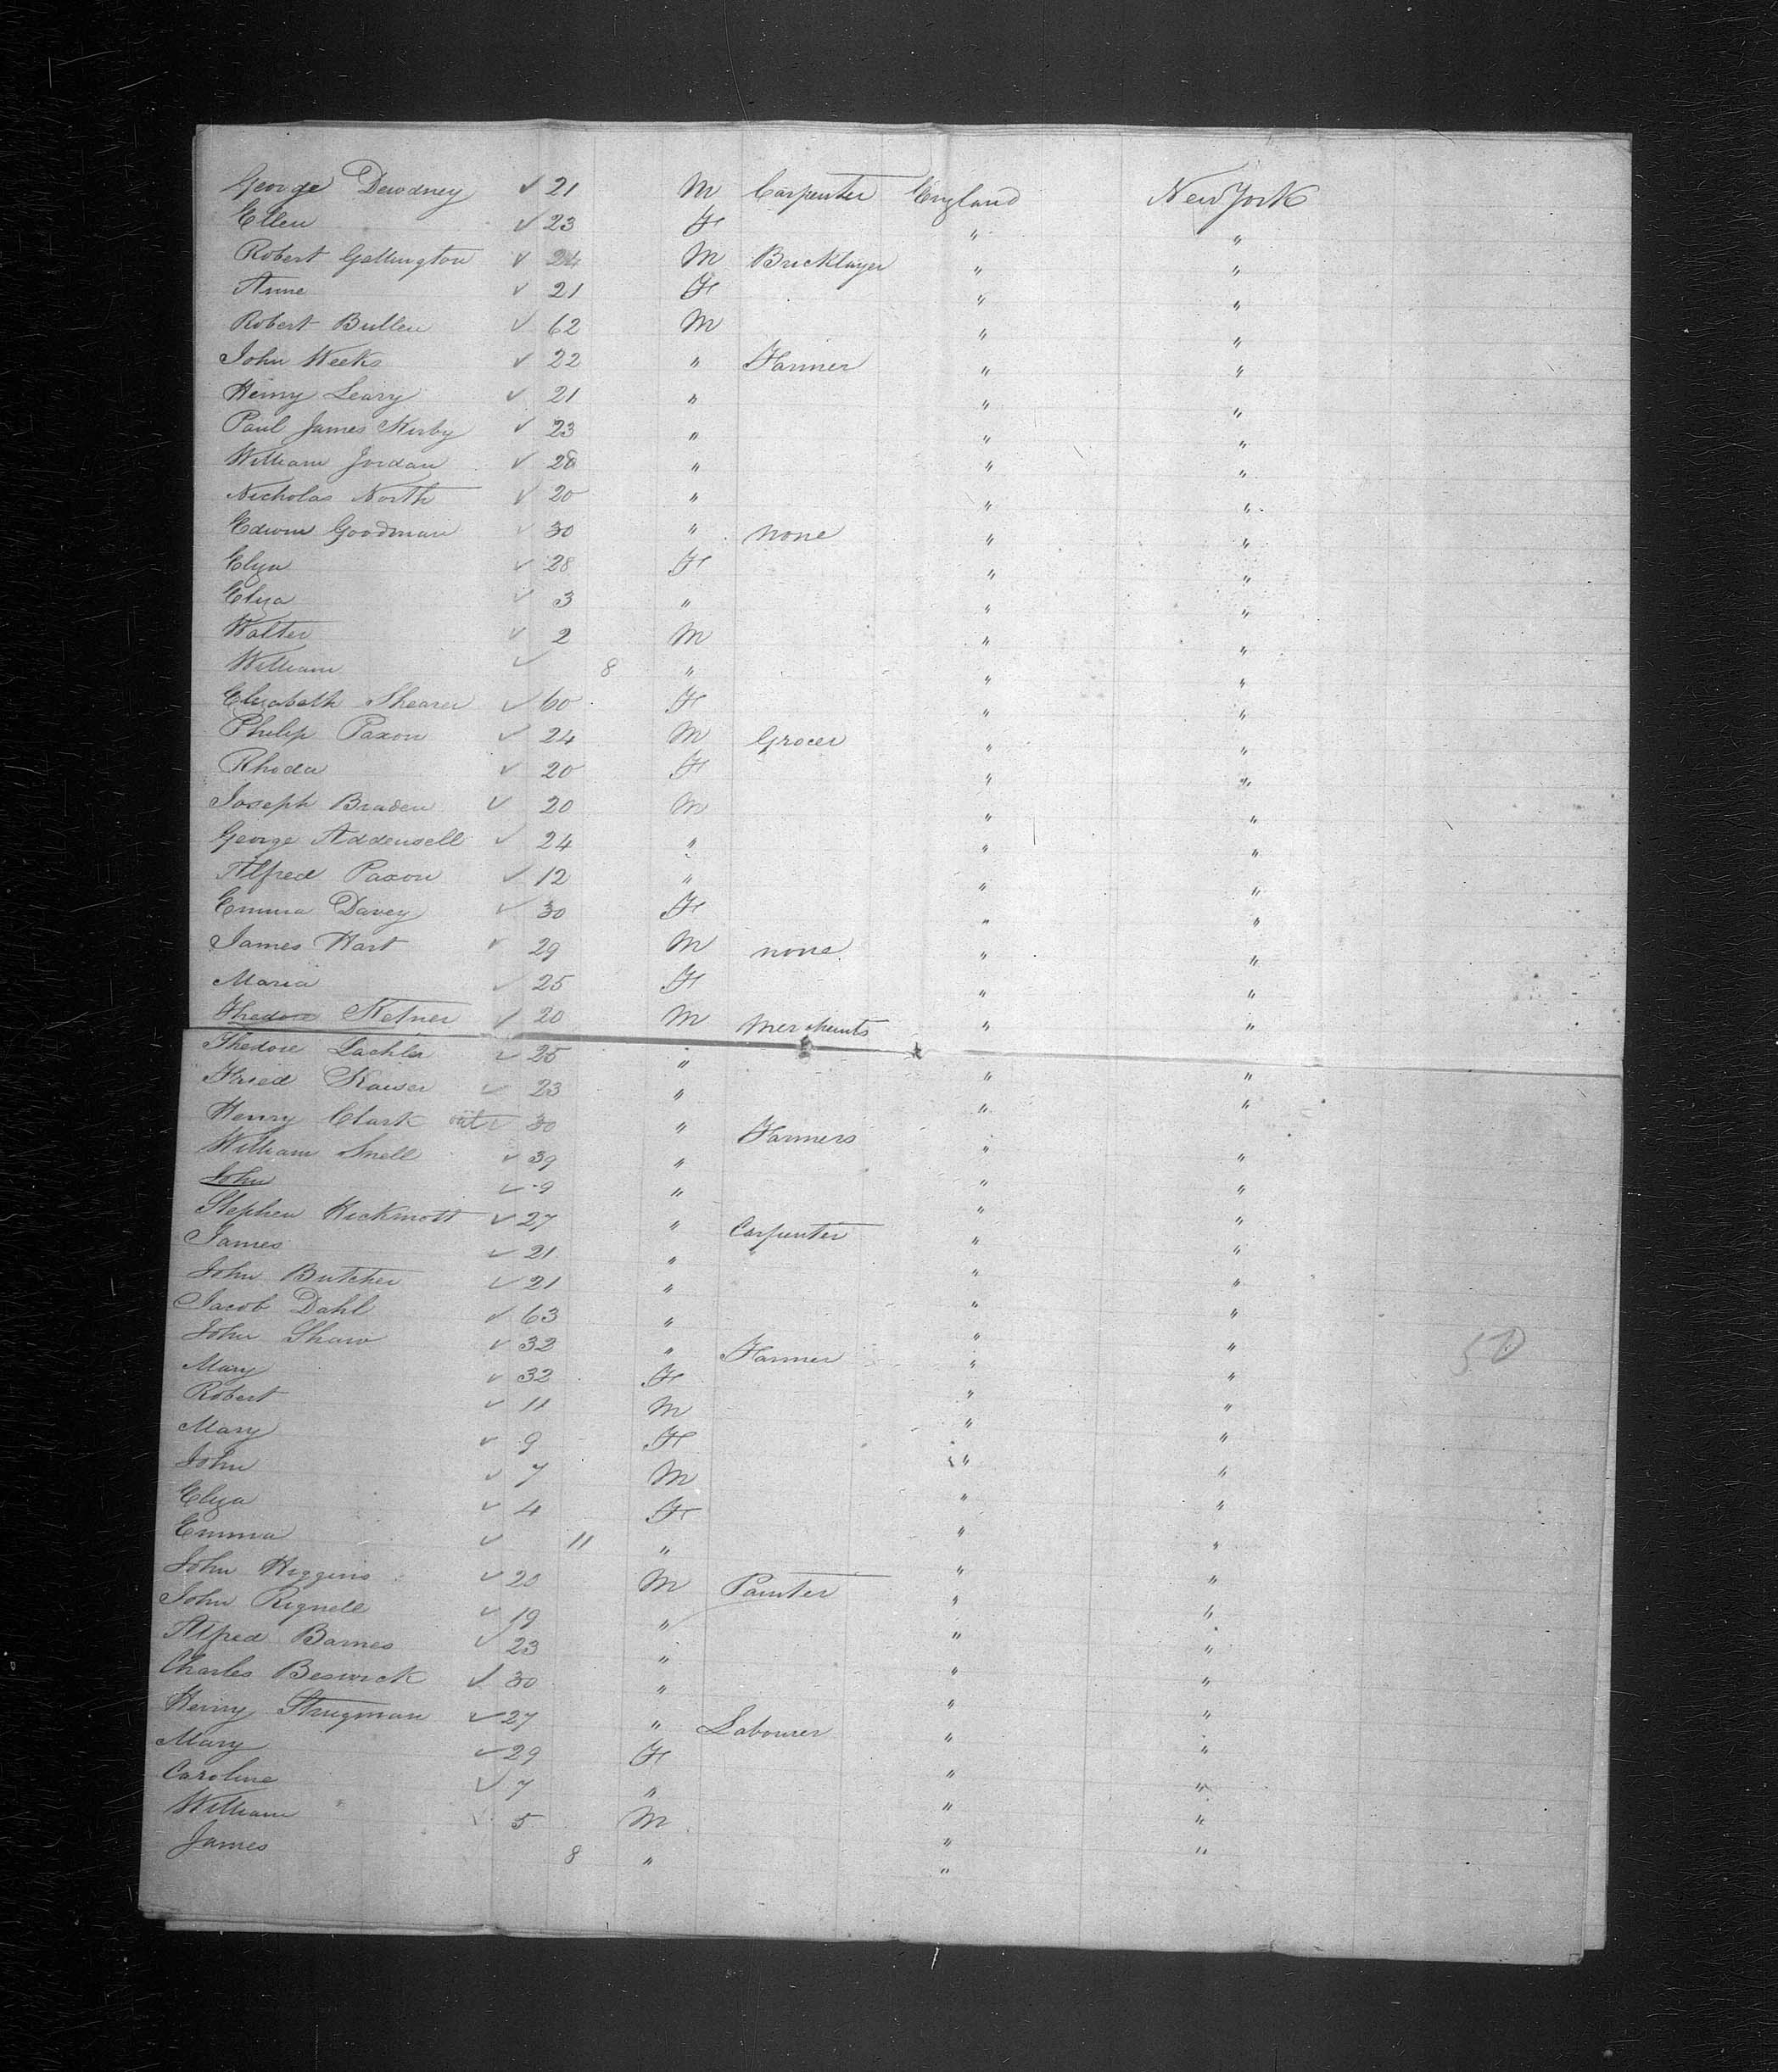 George Dewdney ✓ 21 M Carpenter England New York
Ellen ✓ 23 F " "
Robert Gallington ✓ 24 M Bricklayer " "
Anne ✓ 21 F " "
Robert Bullen ✓ 62 M " "
John Weeks ✓ 22 " Farmer " "
Henry Leary ✓ 21 " " "
Paul James Kirby ✓ 23 " " "
William Jordan ✓ 28 " " "
Nicholas North ✓ 20 " " "
Edwin Goodman ✓ 30 " none " "
Eliza ✓ 28 F " "
Eliza ✓ 3 " " "
Walter ✓ 2 M " "
William ✓ 8 " " "
Elizabeth Shearer ✓ 60 F " "
Philip Paxon ✓ 24 M Grocer " "
Rhoda ✓ 20 F " "
Joseph Braden ✓ 20 M " "
George Addensell ✓ 24 " " "
Alfred Paxon ✓ 12 " " "
Emma Davey ✓ 30 F " "
James Hart ✓ 29 M none " "
Maria ✓ 25 F " "
Thedore Ketner ✓ 20 M Merchants " "
Thedore Lachler ✓ 25 " " "
Fried Kaiser ✓ 23 " " "
Henry Clark ✓ 30 " Farmers " "
William Snell ✓ 39 " " "
John ✓ 9 " " "
Stephen Hickmott ✓ 27 " Carpenter " "
James ✓ 21 " " "
John Butcher ✓ 21 " " "
Jacob Dahl ✓ 63 " " "
John Shaw ✓ 32 " Farmer " "
Mary ✓ 32 F " "
Robert ✓ 11 M " "
Mary ✓ 9 F " "
John ✓ 7 M " "
Eliza ✓ 4 F " "
Emma ✓ 11 " " "
John Higgins ✓ 20 M Painter " "
John Rignell ✓ 19 " " "
Alfred Barnes ✓ 23 " " "
Charles Beswick ✓ 30 " " "
Henry Strugman ✓ 27 " Labourer " "
Mary ✓ 29 F " "
Caroline ✓ 7 " " "
William ✓ 5 M " "
James 8 " " "
50